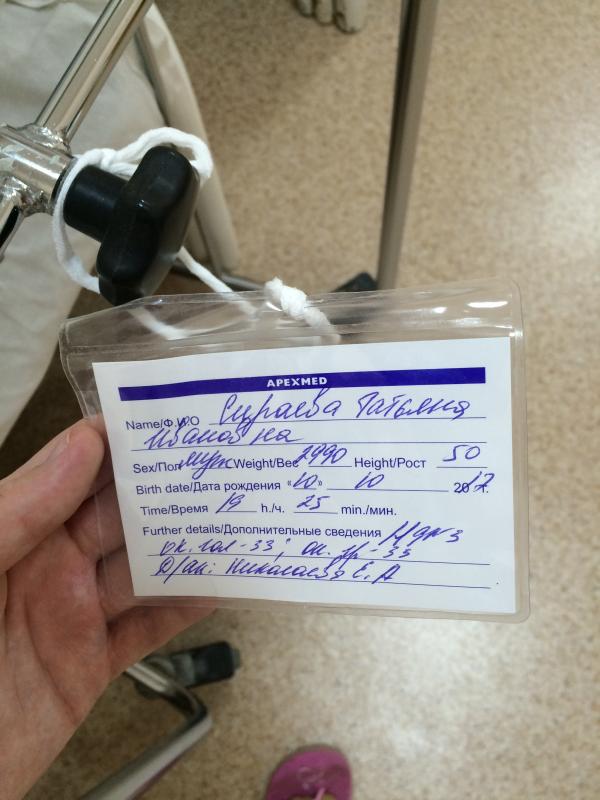 APEXMED
Name/Ф.И.О Сираева Татьяна
Ивановна
Sex/Пол муж Weight/Вес 2990 Height/Рост 50
Birth date/Дата рождения «10» 10 2017г.
Time/Время 19 h./ч. 25 min./мин.
Further details/Дополнительные сведения
ок. гол-33; ок. гр-33
Д/ак: Николаева Е. А